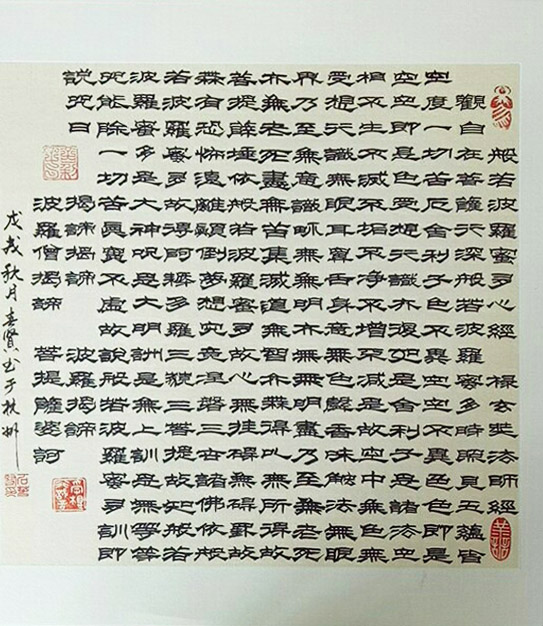 般若波羅蜜多心經 玄奘法師經
觀自在菩薩行深般若波羅蜜多時照見五蘊皆
空度一切苦厄舍利子色不異空空不異色色即是
空空即是色受想行識亦復如是舍利子是諸法空
相不生不滅不垢不淨不增不減是故空中無色無
受想行識無眼耳鼻舌身意無色聲香味觸法無眼
界乃至無意識界無無明亦無無明盡乃至無老死
亦無老死盡無苦集滅道無智亦無得以無所得故
菩提薩埵依般若波羅蜜多故心無罣礙無罣礙故
無有恐怖遠離顛倒夢想究竟涅槃三世諸佛依般
若波羅蜜多故得阿耨多羅三藐三菩提故知般若
波羅蜜多是大神咒是大明咒是無上咒是無等等
咒能除一切苦真實不虛故說般若波羅蜜多咒即
說咒曰 揭諦揭諦 波羅揭諦
波羅僧揭諦 菩提薩婆訶
戊戌秋月春賢書于杭州